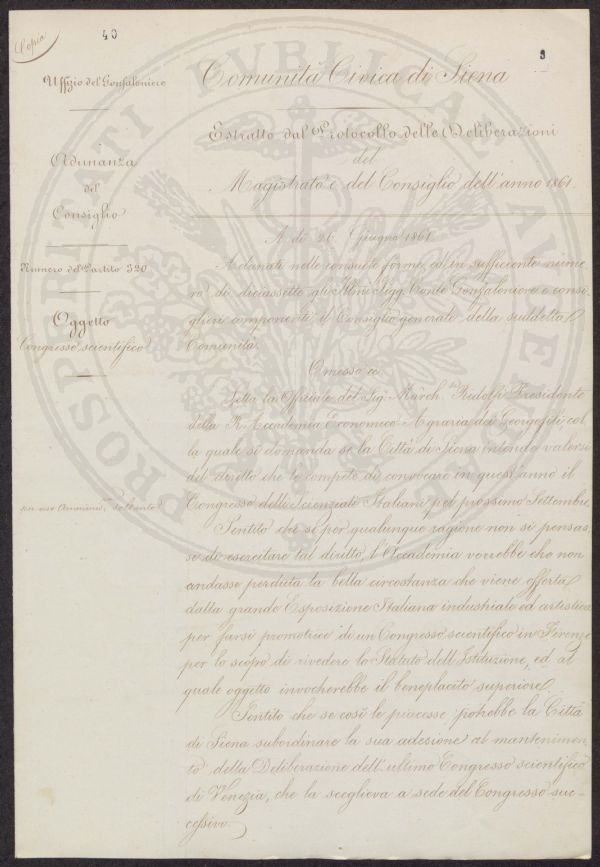 Copia
40
9
Uffizio del Gonfaloniere
Comunità Civica di Siena
Estratto dal Protocollo delle Deliberazioni
del
Magistrato e del Consiglio dell'anno 1861.
Adunanza
del
Consiglio
Numero del Partito 320
Oggetto
Congresso scientifico
A dì 26 Giugno 1861
Adunati nelle consuete forme, ed in sufficiente nume
ro di diciassette gli Illmi Sigg. Conte Gonfaloniere e consi
glieri componenti il Consiglio generale della suddetta
Comunità.
Omesso
Letta la Officiale del Sig. March. Ridolfi Presidente
della R. Accademia Economico Agraria dei Georgofili col
la quale si domanda se la Città di Siena intenda valersi
del diritto che le compete di convocare in quest'anno il
Congresso delli Scienziati Italiani pel prossimo Settembre
per uso soltanto
Sentito che se per qualunque ragione non si pensas
se di esercitare tal diritto, l'Accademia vorrebbe che non
andasse perduta la bella circostanza che viene offerta
dalla grande Esposizione Italiana industriale ed artistica
per farsi promotrice di un Congresso scientifico in Firenze
per lo scopo di rivedere lo Statuto dell'Istituzione, ed al
quale oggetto invocherebbe il beneplacito superiore.
Sentito che se così le piacesse potrebbe la Città
di Siena subordinare la sua adesione al mantenimen
to della Deliberazione dell'ultimo Congresso scientifico
di Venezia, che la sceglieva a sede del Congresso suc-
cessivo.
PROSPERITATI PVBLICAE AVGENDAE